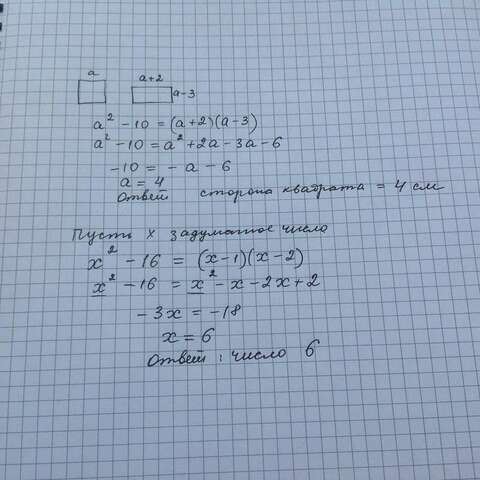 a
a+2
a-3
a² - 10 = (a+2)(a-3)
a² - 10 = a² + 2a - 3a - 6
-10 = -a - 6
a = 4
Ответ сторона квадрата = 4 см
Пусть x задуманное число
x² - 16 = (x-1)(x-2)
x² - 16 = x² - x - 2x + 2
-3x = -18
x = 6
Ответ: число 6